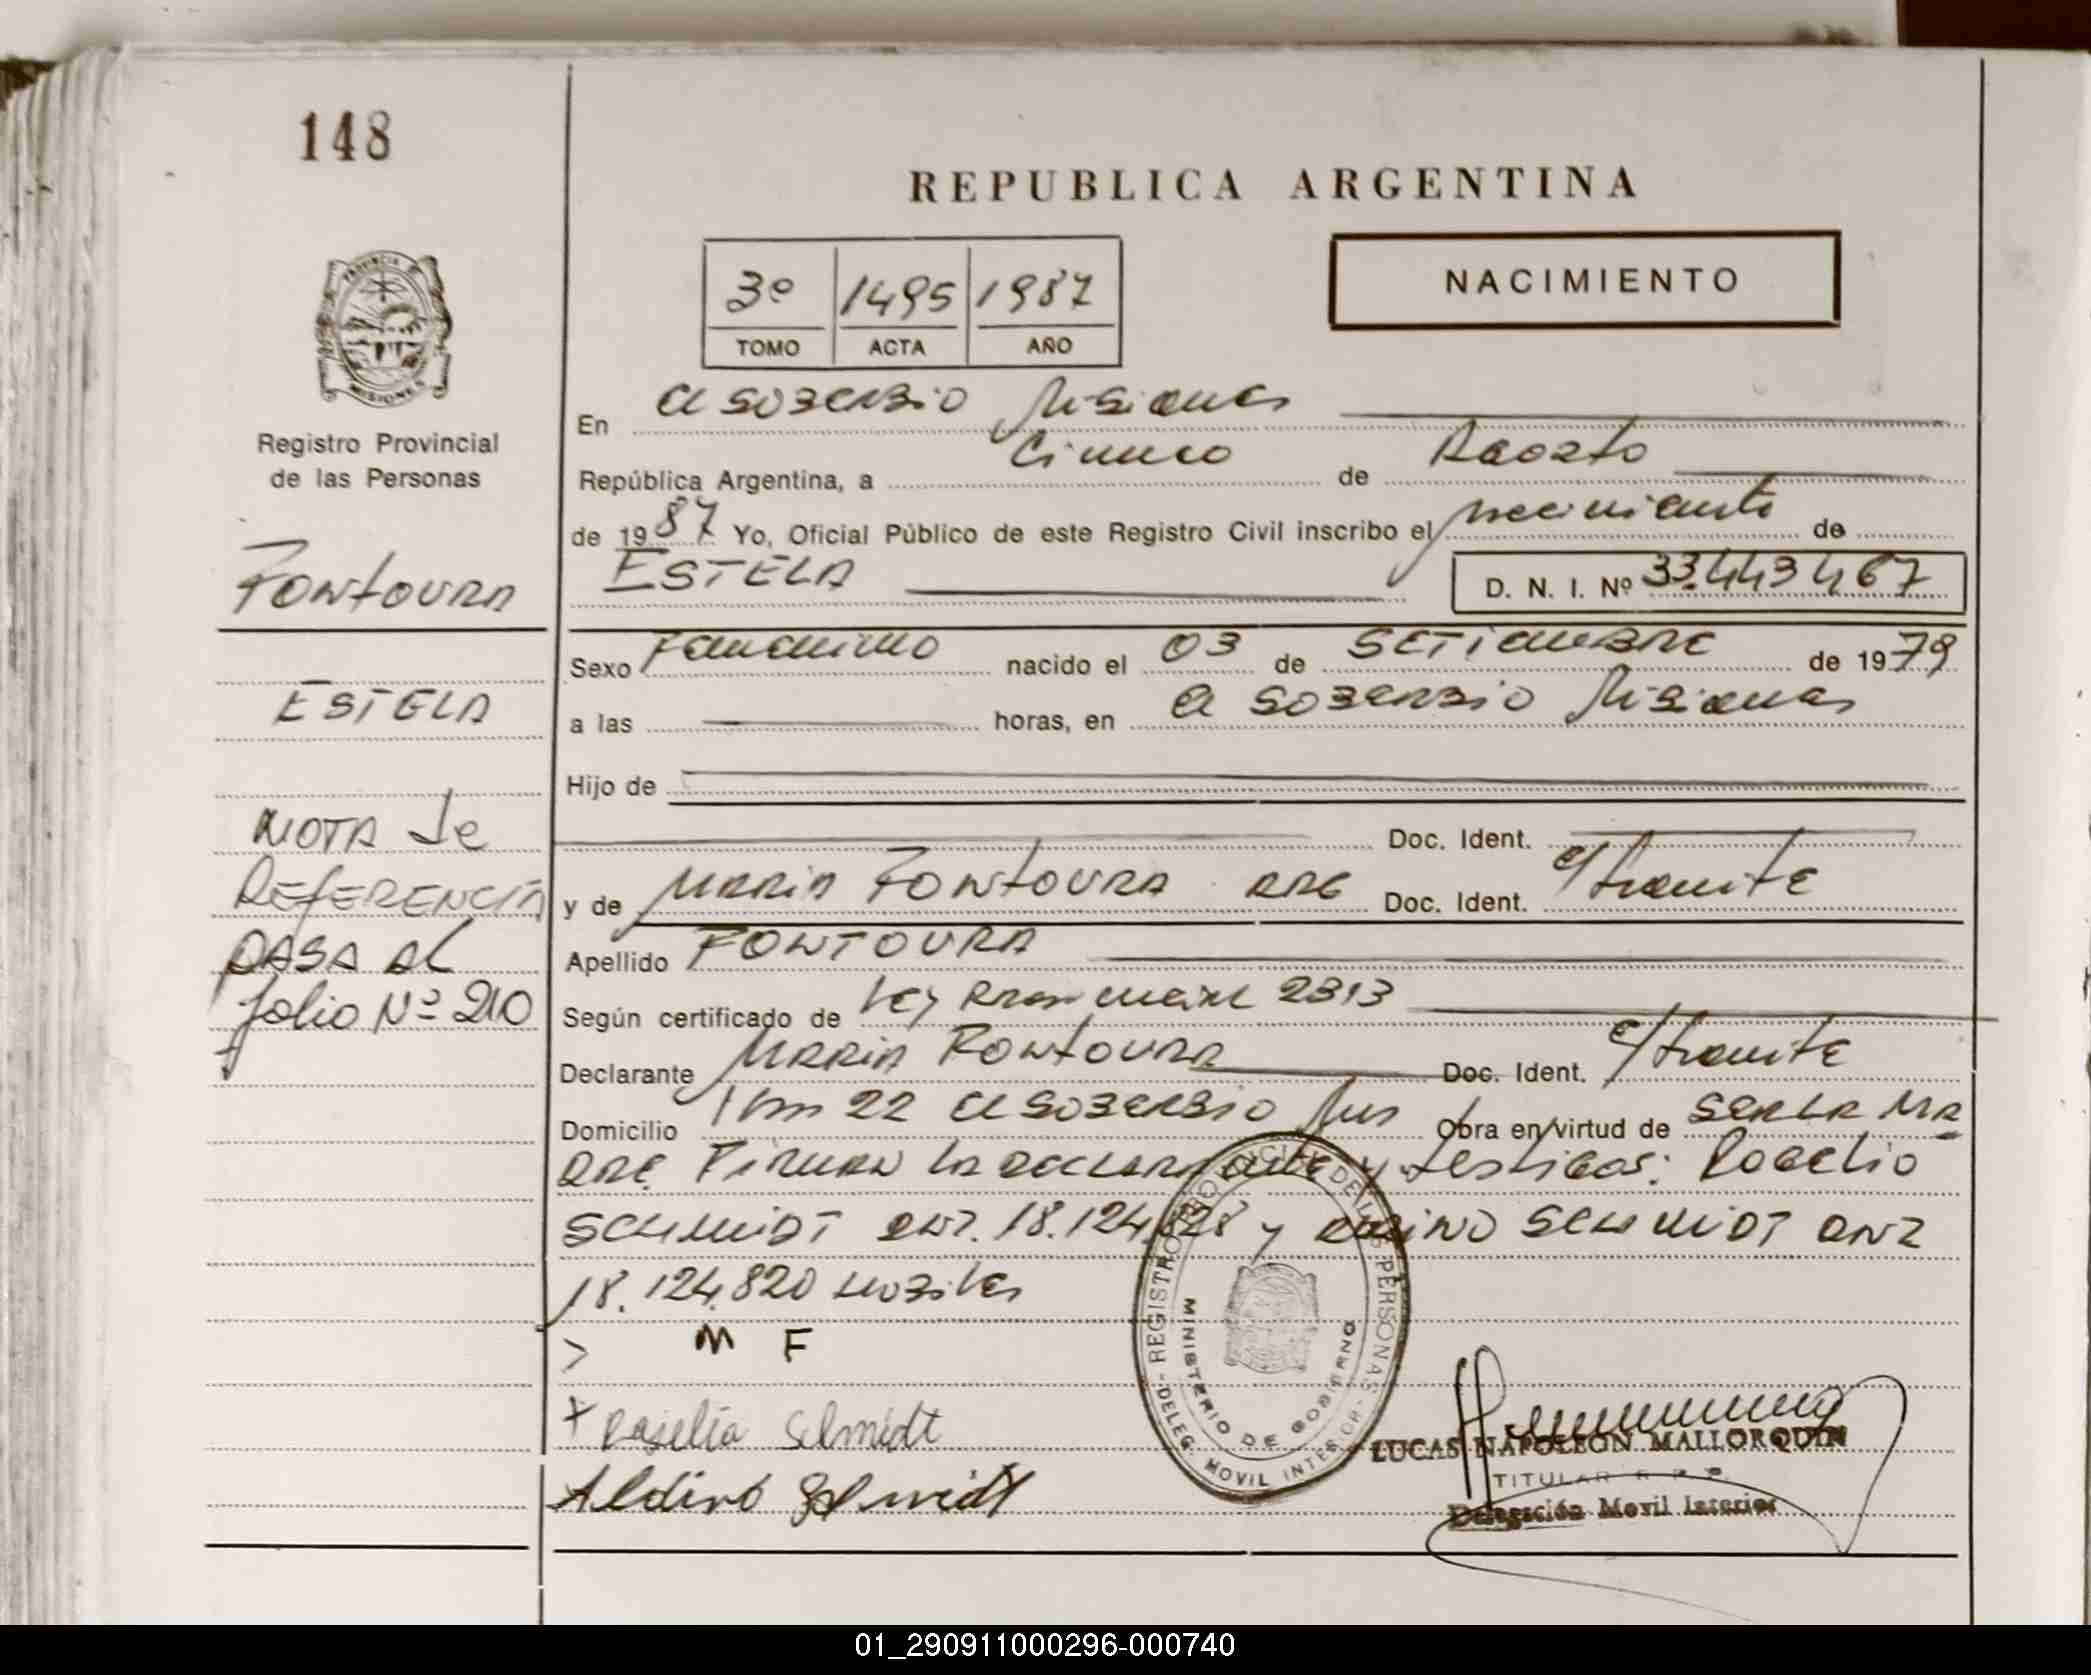 148
REPUBLICA ARGENTINA
3º 1495 1987
TOMO ACTA AÑO
NACIMIENTO
PROVINCIA DE
MISIONES
Registro Provincial
de las Personas
Fontoura
ESTELA
NOTA de
REFERENCIA
PASA AL
folio Nº 210
En El SOBERBIO Misiones
República Argentina, a Cinco de Agosto
de 1987 Yo, Oficial Público de este Registro Civil inscribo el nacimiento de
ESTELA D. N. I. Nº 33.443.467
Sexo Femenino nacido el 03 de SETIEMBRE de 1979
a las horas, en El SOBERBIO Misiones
Hijo de
Doc. Ident.
y de MARIA FONTOURA ARG Doc. Ident. e/tramite
Apellido FONTOURA
Según certificado de Ley 2313
Declarante MARIA FONTOURA Doc. Ident. e/tramite
Domicilio Km 22 El SOBERBIO Mns Obra en virtud de SER LA MA
DRE Firman la declarante y testigos: Rogelio
SCHMIDT DNI. 18.124.828 y ALDINO SCHMIDT DNI
18.124.820 habiles
M F
x Roselia Schmidt
Aldino Schmidt
REGISTRO PROVINCIAL DE LAS PERSONAS
-DELEG. MOVIL INTERIOR-
MINISTERIO DE GOBIERNO
LUCAS NAPOLEON MALLORQUIN
TITULAR R. P. P.
Delegación Movil Interior
01_290911000296-000740